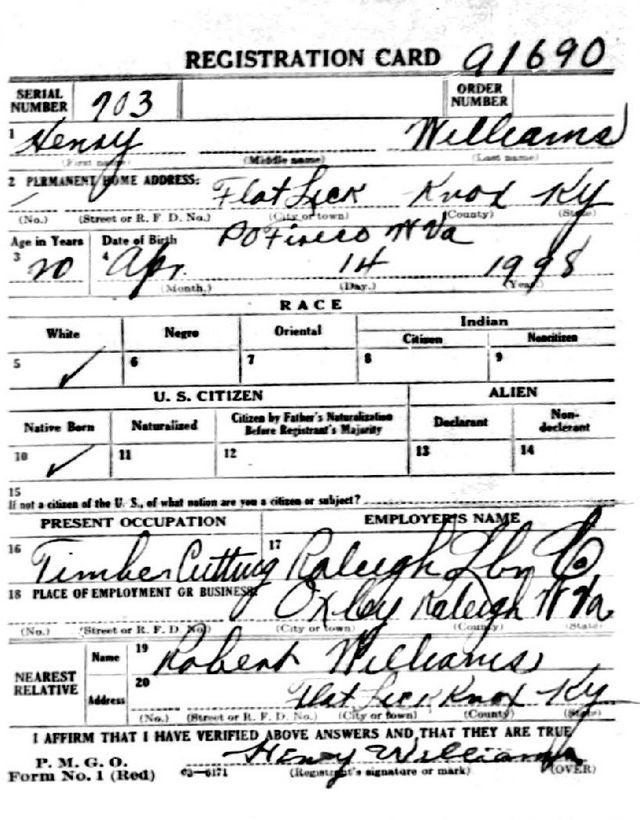 REGISTRATION CARD 91690
SERIAL NUMBER 703 ORDER NUMBER
1 Henry Williams
(First name) (Middle name) (Last name)
2 PERMANENT HOME ADDRESS: Flat Lick Knox Ky
(No.) (Street or R. F. D. No.) (City or town) (County) (State)
Age in Years Date of Birth PO W Va
3 20 4 Apr. 14 1998
(Month.) (Day.) (Year.)
RACE
White Negro Oriental Indian
Citizen Noncitizen
5 ✓ 6 7 8 9
U. S. CITIZEN ALIEN
Native Born Naturalized Citizen by Father's Naturalization Before Registrant's Majority Declarant Non-declarant
10 ✓ 11 12 13 14
15
If not a citizen of the U. S., of what nation are you a citizen or subject?
PRESENT OCCUPATION EMPLOYER'S NAME
16 Timber Cutting 17 Raleigh Lbr Co
18 PLACE OF EMPLOYMENT OR BUSINESS: Oxley Raleigh W Va.
(No.) (Street or R. F. D. No.) (City or town) (County) (State)
NEAREST RELATIVE Name 19 Robert Williams
Address 20 Flat Lick Knox Ky
(No.) (Street or R. F. D. No.) (City or town) (County) (State)
I AFFIRM THAT I HAVE VERIFIED ABOVE ANSWERS AND THAT THEY ARE TRUE
P. M. G. O. Henry Williams
Form No. 1 (Red) 03—6171 (Registrant's signature or mark) (OVER)